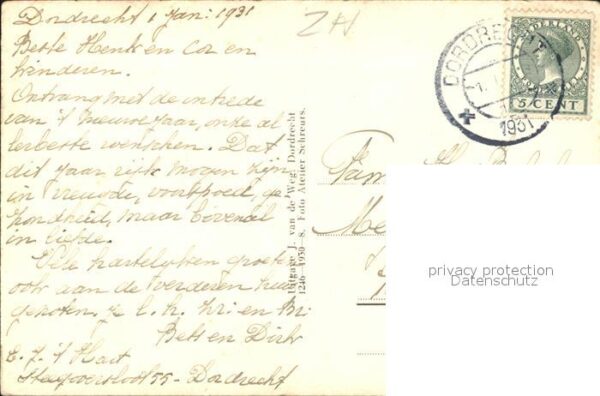 Dordrecht 1 Jan: 1931
ZH
Beste Henk en Cor en
kinderen.
Ontvang met de intrede
van 't nieuwe jaar, onze al
lerbeste wenschen. Dat
dit jaar rijk mogen zijn
in vreugde, voorspoed, ge
zondheid, maar bovenal
in liefde.
Vele hartelijken groete
ook aan de verderen huis
genoten.
Bets en Dirk
't Hart
55 - Dordrecht
Uitgave J. van de Weg, Dordrecht
1246-1930-8. Foto Atelier Schreurs.
Fam
Me
DORDRECHT
1931
NEDERLAND
5 CENT
privacy protection
Datenschutz